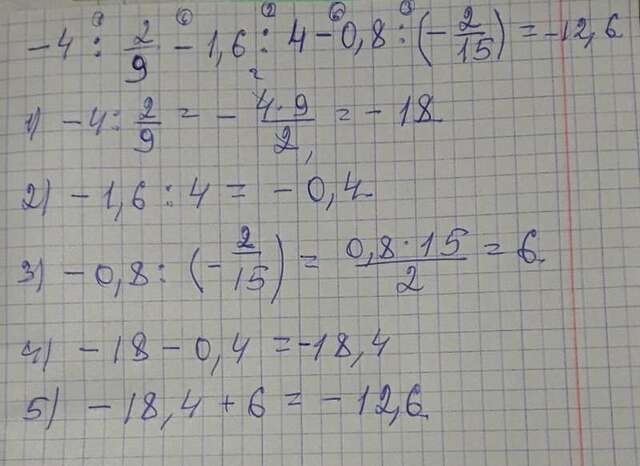 -4 : 2/9 - 1,6 : 4 - 0,8 : (- 2/15) = -12,6
1) -4 : 2/9 = - 4·9/2 = -18
2) -1,6 : 4 = -0,4
3) -0,8 : (- 2/15) = 0,8·15/2 = 6
4) -18 - 0,4 = -18,4
5) -18,4 + 6 = -12,6